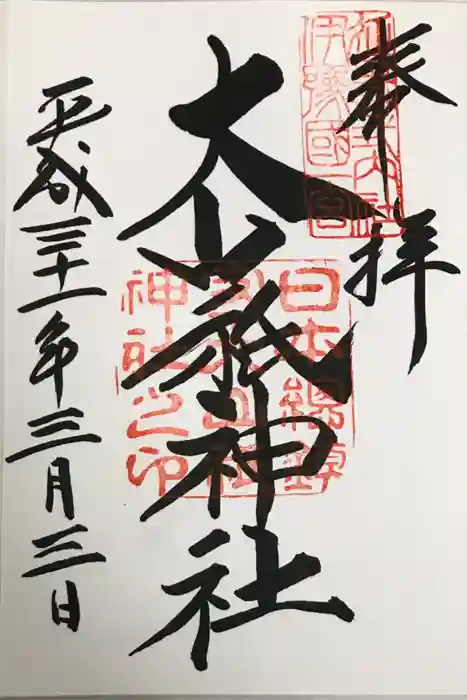 奉拝
伊豫國一宮
大山祇神社
日本總鎮
神社之印
平成三十一年三月三日